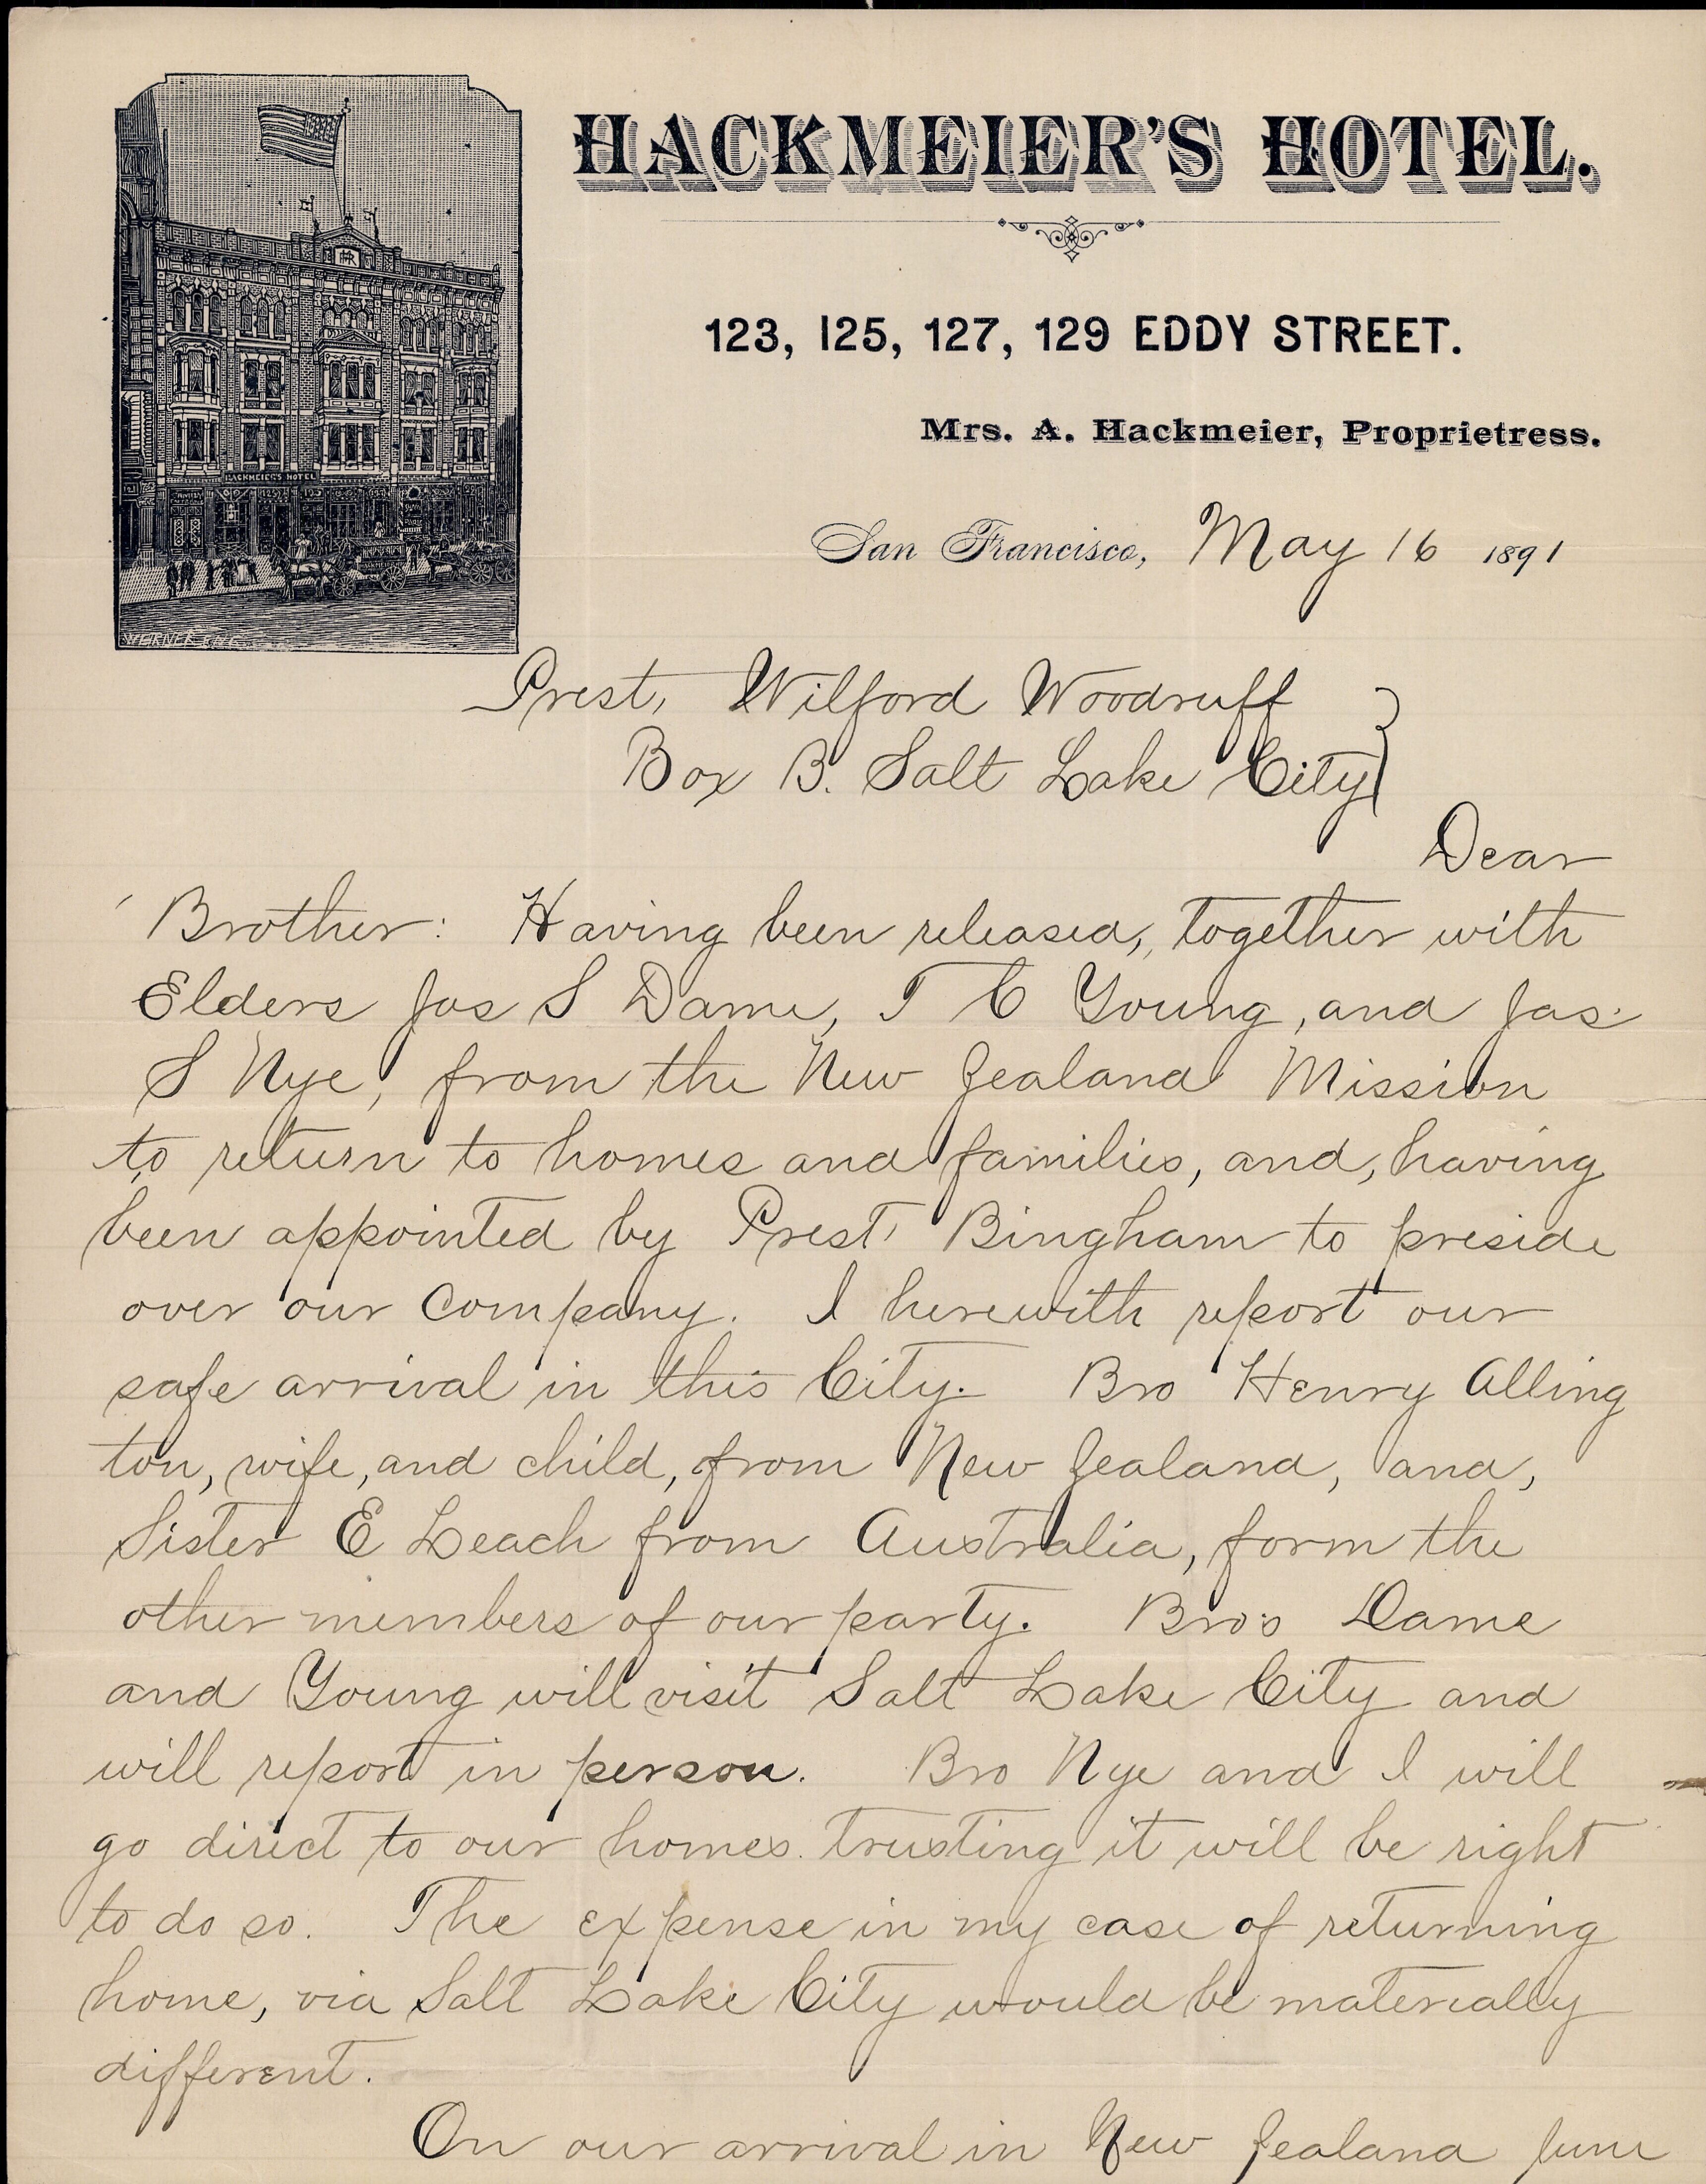 HACKMEIER'S HOTEL.
123, 125, 127, 129 EDDY STREET.
Mrs. A. Hackmeier, Proprietress.
San Francisco, May 16 1891
HACKMEIER'S HOTEL
WERNER ENG.
Prest, Wilford Woodruff
Box B. Salt Lake City
Dear
Brother: Having been released, together with
Elders Jas S Dame, T C Young, and Jas.
S Nye, from the New Zealand Mission
to return to homes and families, and, having
been appointed by Prest, Bingham to preside
over our Company. I herewith report our
safe arrival in this City. Bro Henry Alling
ton, wife, and child, from New Zealand, and,
Sister E Leach from Australia, form the
other members of our party. Bro's Dame
and Young will visit Salt Lake City and
will report in person. Bro Nye and I will
go direct to our homes. trusting it will be right
to do so. The expense in my case of returning
home, via Salt Lake City would be materially
different.
On our arrival in New Zealand June